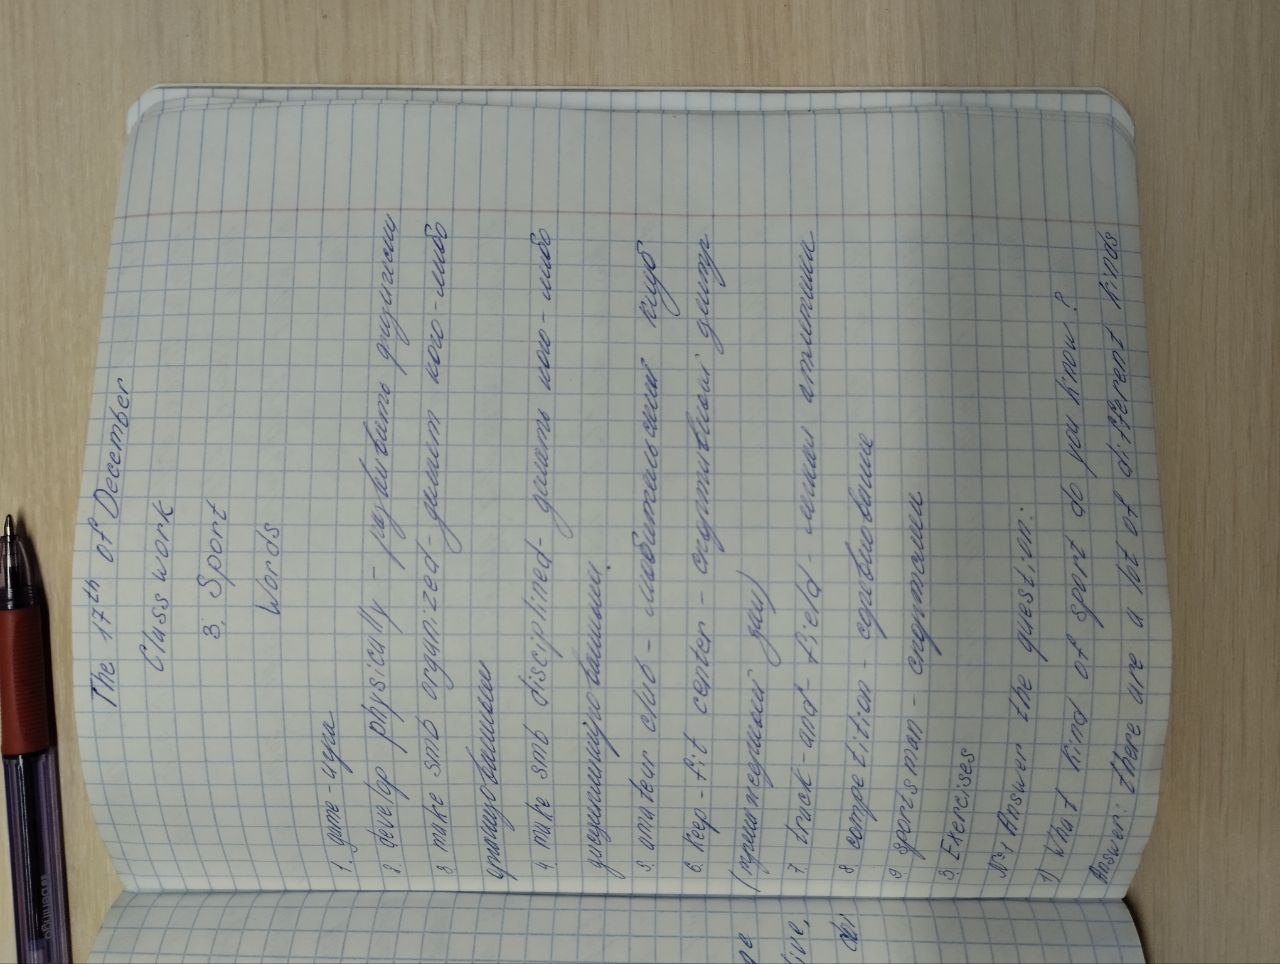 The 17th of December
Class work
3. Sport
Words
1. game - игра
2. develop physically - развивать физически
3 make smb organized - делает кого-либо
организованным
4. make smb disciplined - делать кого-либо
дисциплинированным.
5. amateur club - любительский клуб
6. keep-fit center - спортивный центр
(тренажерный зал)
7. track-and-field - легкая атлетика
8. competition - соревнование
9 sportsman - спортсмен
3 Exercises
№1 Answer the question:
1) What kind of sport do you know?
Answer: there are a lot of different kinds